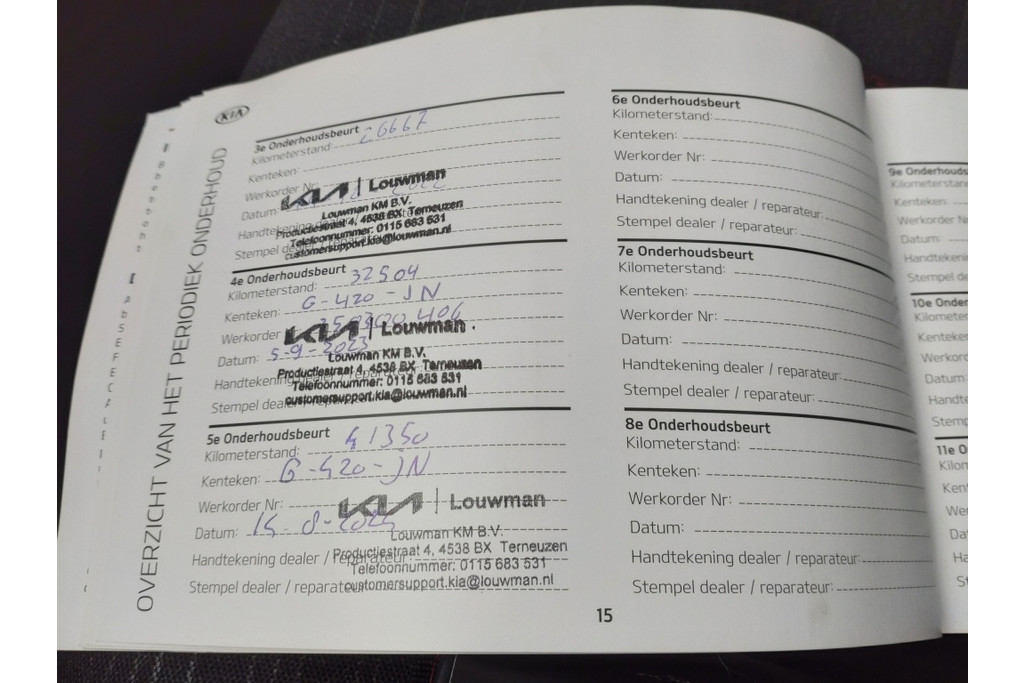 KIA
OVERZICHT VAN HET PERIODIEK ONDERHOUD
3e Onderhoudsbeurt
Kilometerstand: 26667
Kenteken:
Werkorder Nr:
Datum:
Handtekening dealer
Stempel dealer
KIA | Louwman
Louwman KM B.V.
Productiestraat 4, 4538 BX Terneuzen
Telefoonnummer: 0115 683 531
customersupport.kia@louwman.nl
4e Onderhoudsbeurt
Kilometerstand: 32504
Kenteken: G-420-JN
Werkorder
Datum: 5-9-2023
Handtekening dealer / reparateur
Stempel dealer /
KIA | Louwman
Louwman KM B.V.
Productiestraat 4, 4538 BX Terneuzen
Telefoonnummer: 0115 683 531
customersupport.kia@louwman.nl
5e Onderhoudsbeurt
Kilometerstand: 41350
Kenteken: G-420-JN
Werkorder Nr:
Datum:
Handtekening dealer / reparateur:
Stempel dealer / reparateur
KIA | Louwman
Louwman KM B.V.
Productiestraat 4, 4538 BX Terneuzen
Telefoonnummer: 0115 683 531
customersupport.kia@louwman.nl
6e Onderhoudsbeurt
Kilometerstand:
Kenteken:
Werkorder Nr:
Datum:
Handtekening dealer / reparateur:
Stempel dealer / reparateur:
7e Onderhoudsbeurt
Kilometerstand:
Kenteken:
Werkorder Nr:
Datum:
Handtekening dealer / reparateur:
Stempel dealer / reparateur:
8e Onderhoudsbeurt
Kilometerstand:
Kenteken:
Werkorder Nr:
Datum:
Handtekening dealer / reparateur:
Stempel dealer / reparateur:
15
9e Onderhouds
Kilometerstan
Kenteken:
Werkorder N
Datum:
Handtekenin
Stempel de
10e Onder
Kilometer
Kenteke
Werkor
Datum
Handt
Stem
11e O
Kilon
Ken
We
Da
Ha
St